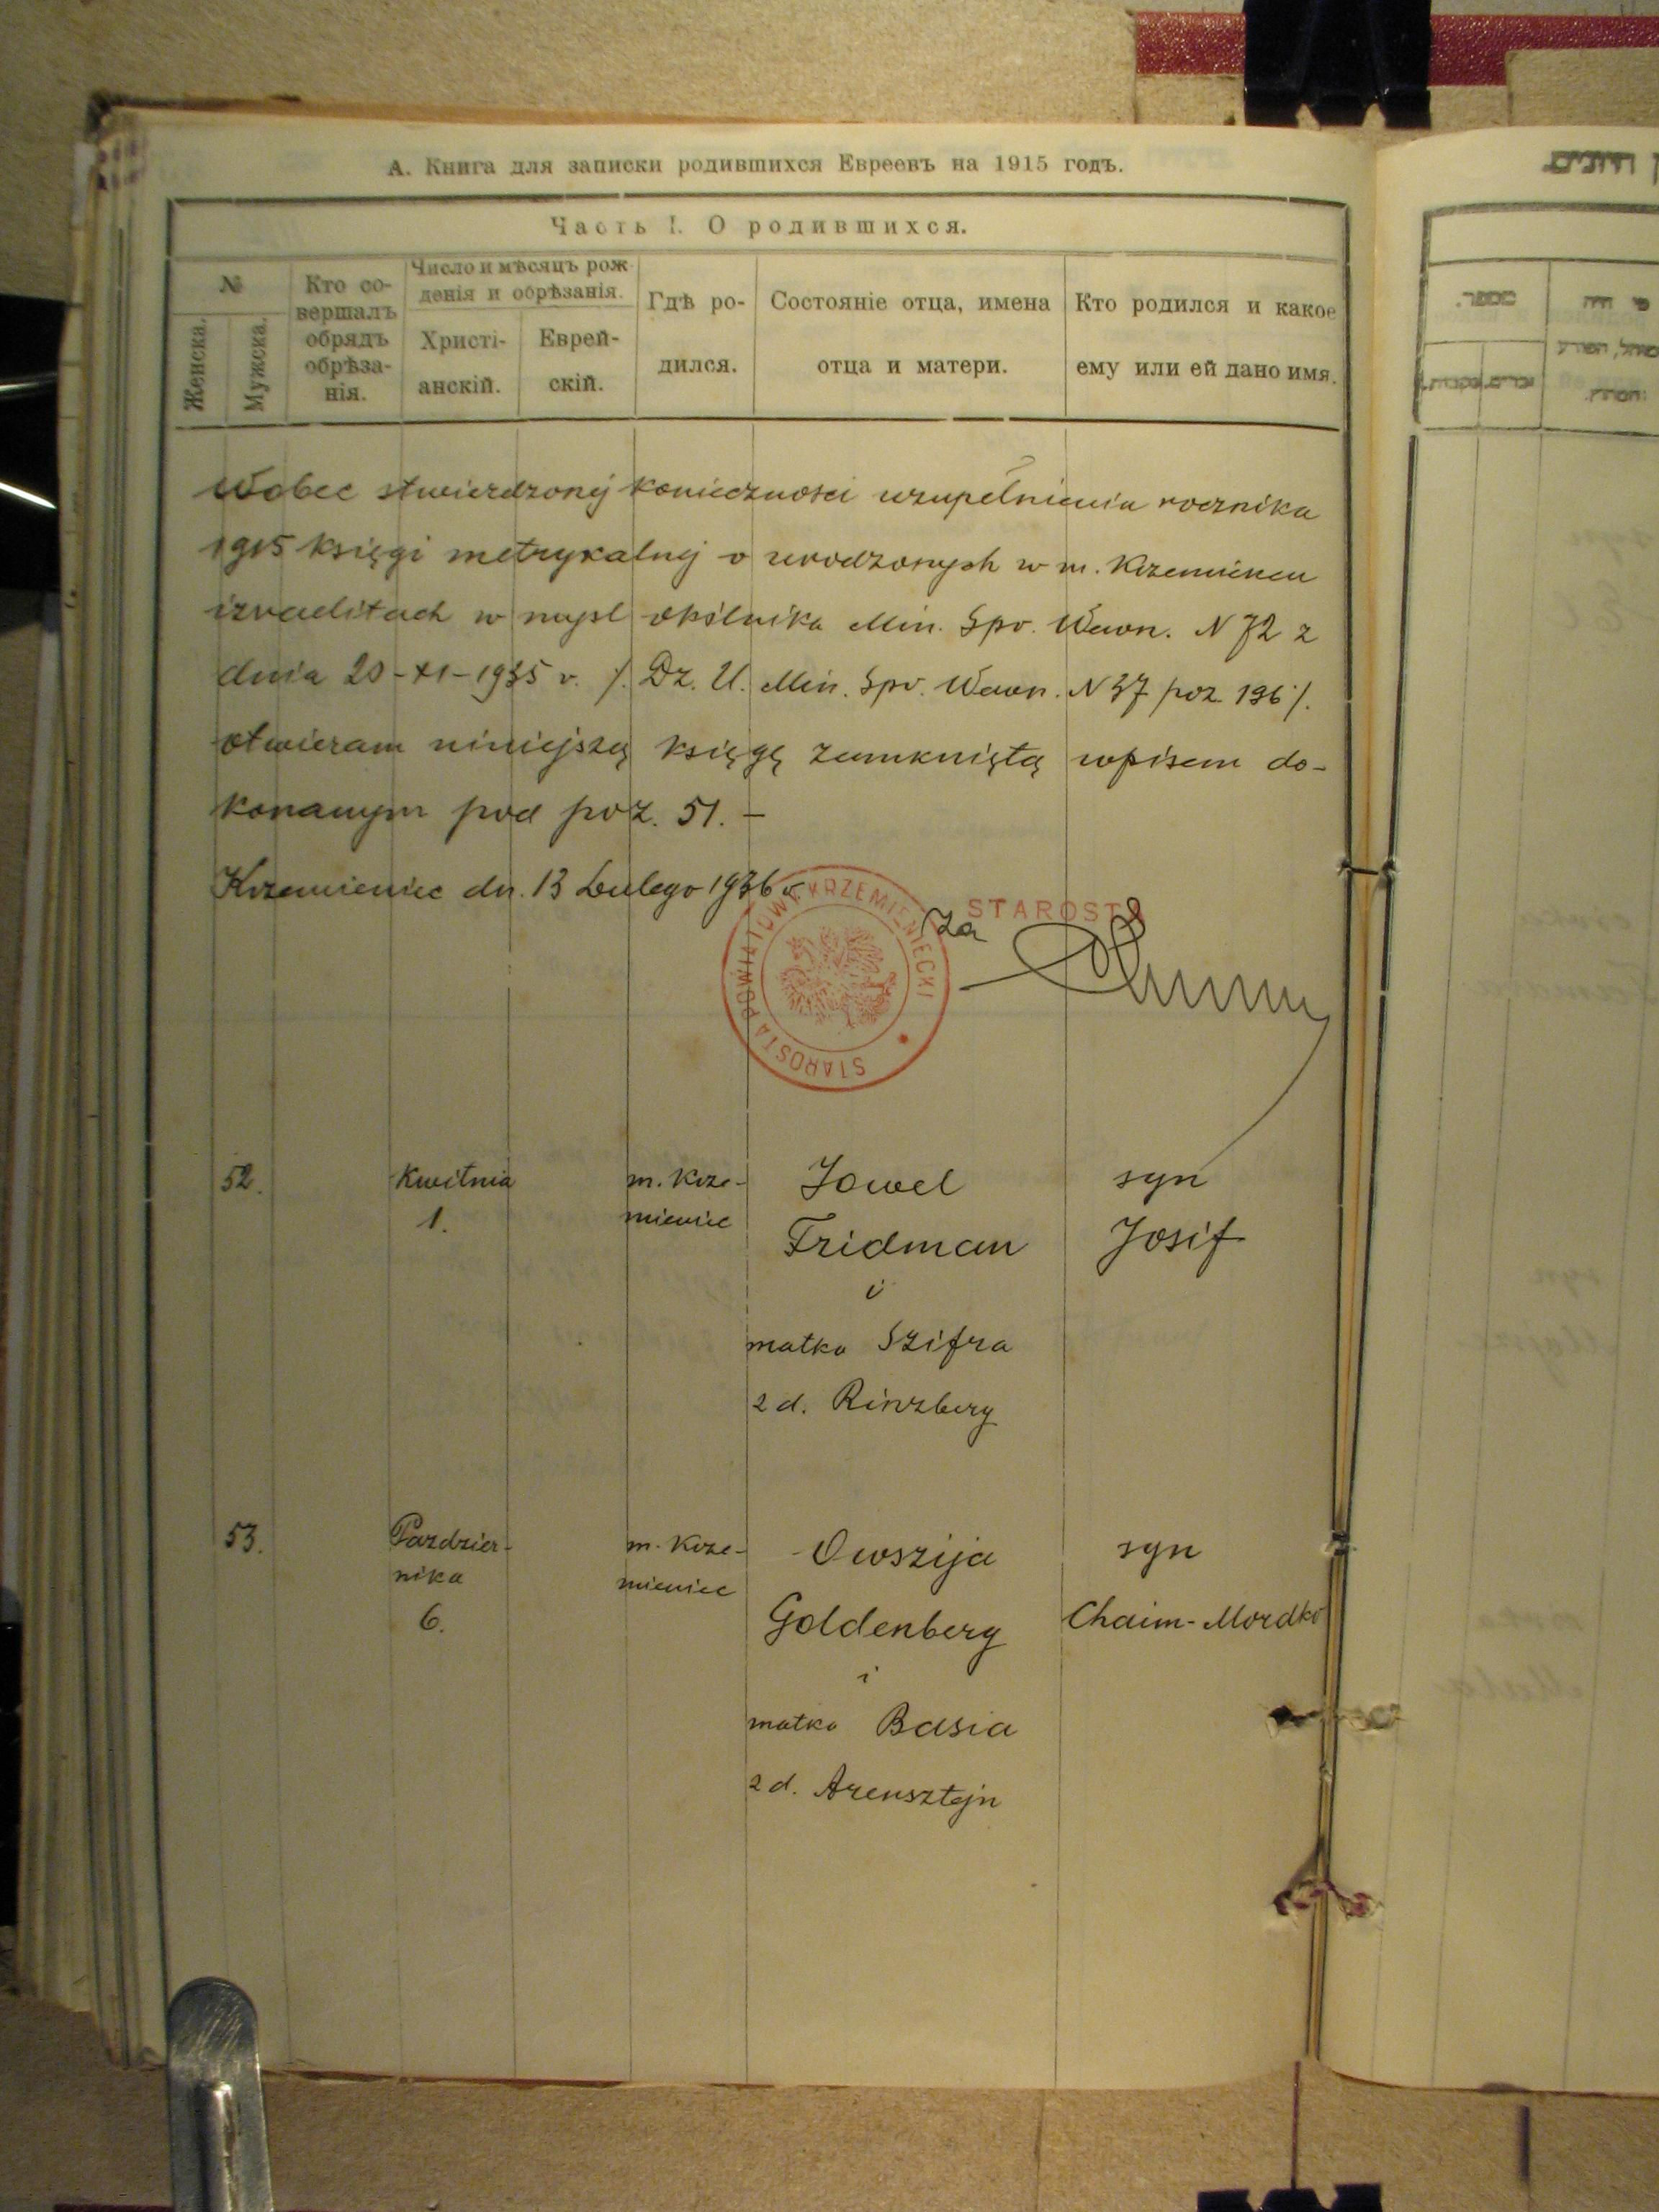 А. Книга для записки родившихся Евреевъ на 1915 годъ.
Часть I. О родившихся.
№
Женска.
Мужска.
Кто со-
вершалъ
обрядъ
обрѣза-
нія.
Число и мѣсяцъ рож-
денія и обрѣзанія.
Христі-
анскій.
Еврей-
скій.
Гдѣ ро-
дился.
Состояніе отца, имена
отца и матери.
Кто родился и какое
ему или ей дано имя.
Wobec stwierdzonej konieczności uzupełnienia rocznika
1915 księgi metrykalnej o urodzonych w m. Krzemieńcu
izraelitach w myśl okólnika Min. Spr. Wewn. N 72 z
dnia 20-XI-1935 r. /. Dz. U. Min. Spr. Wewn. N 37 poz. 196 /.
otwieram niniejszą księgę zamkniętą wpisem do-
konanym pod poz. 51. -
Krzemieniec dn. 13 Lutego 1936 r.
STAROSTA POWIATOWY KRZEMIENIECKI
za STAROSTA
52.
Kwitnia
1.
m. Krze-
mieniec
Jowel
Fridman
i
matka Szifra
z d. Rinzberg
syn
Josif
53.
Pazdzier-
nika
6.
m. Krze-
mieniec
Owszija
Goldenberg
i
matka Basia
z d. Arensztejn
syn
Chaim-Mordko